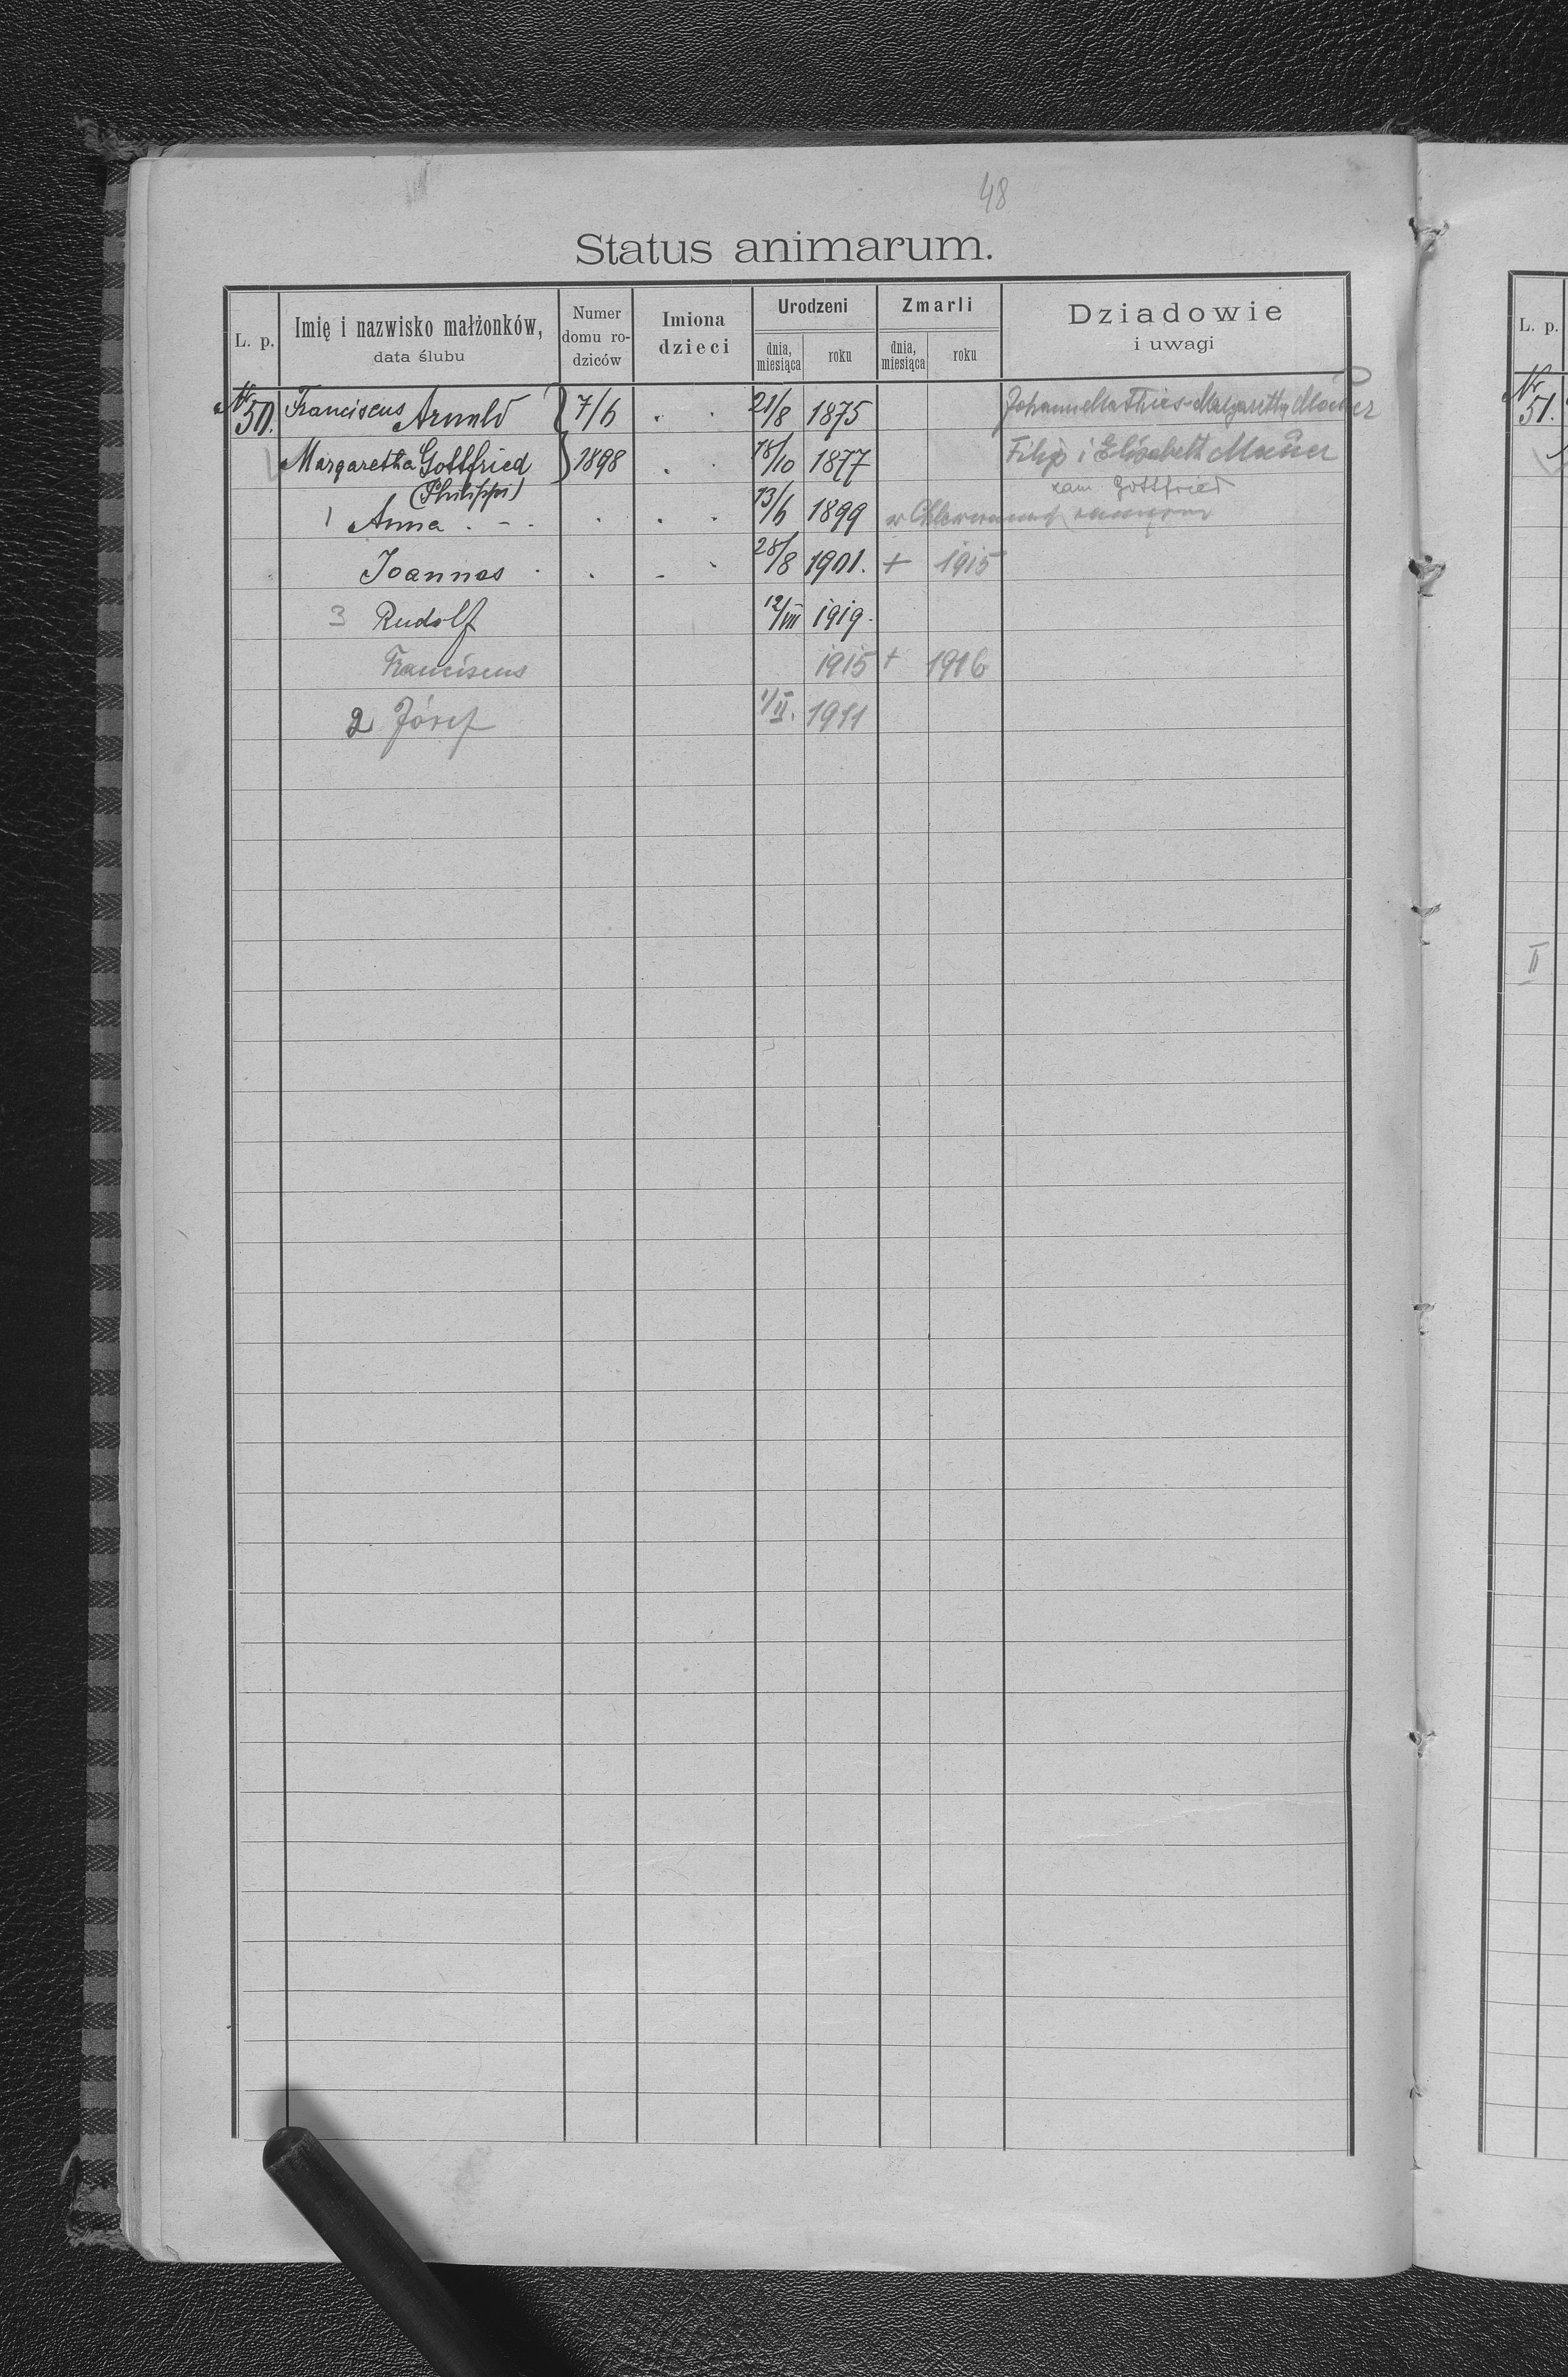 48
Status animarum.
L. p.
Imię i nazwisko małżonków,
data ślubu
Numer
domu ro-
dziców
Imiona
dzieci
Urodzeni
dnia,
miesiąca
roku
Zmarli
dnia,
miesiąca
roku
Dziadowie
i uwagi
Nr 50. Franciscus Arnold 7/6 21/8 1875 Johann Mathies Margaretha Mauer
Margaretha Gottfried 1898 18/10 1877 Filip i Elisabeth Mauer
(Philippi) zam Gottfried
1 Anna 13/6 1899 w
Joannes 28/8 1901. + 1915
3 Rudolf 12/VIII 1919.
Franciscus 1915 + 1916
2 Józef 1/II. 1911
L. p.
Nr
51.
II